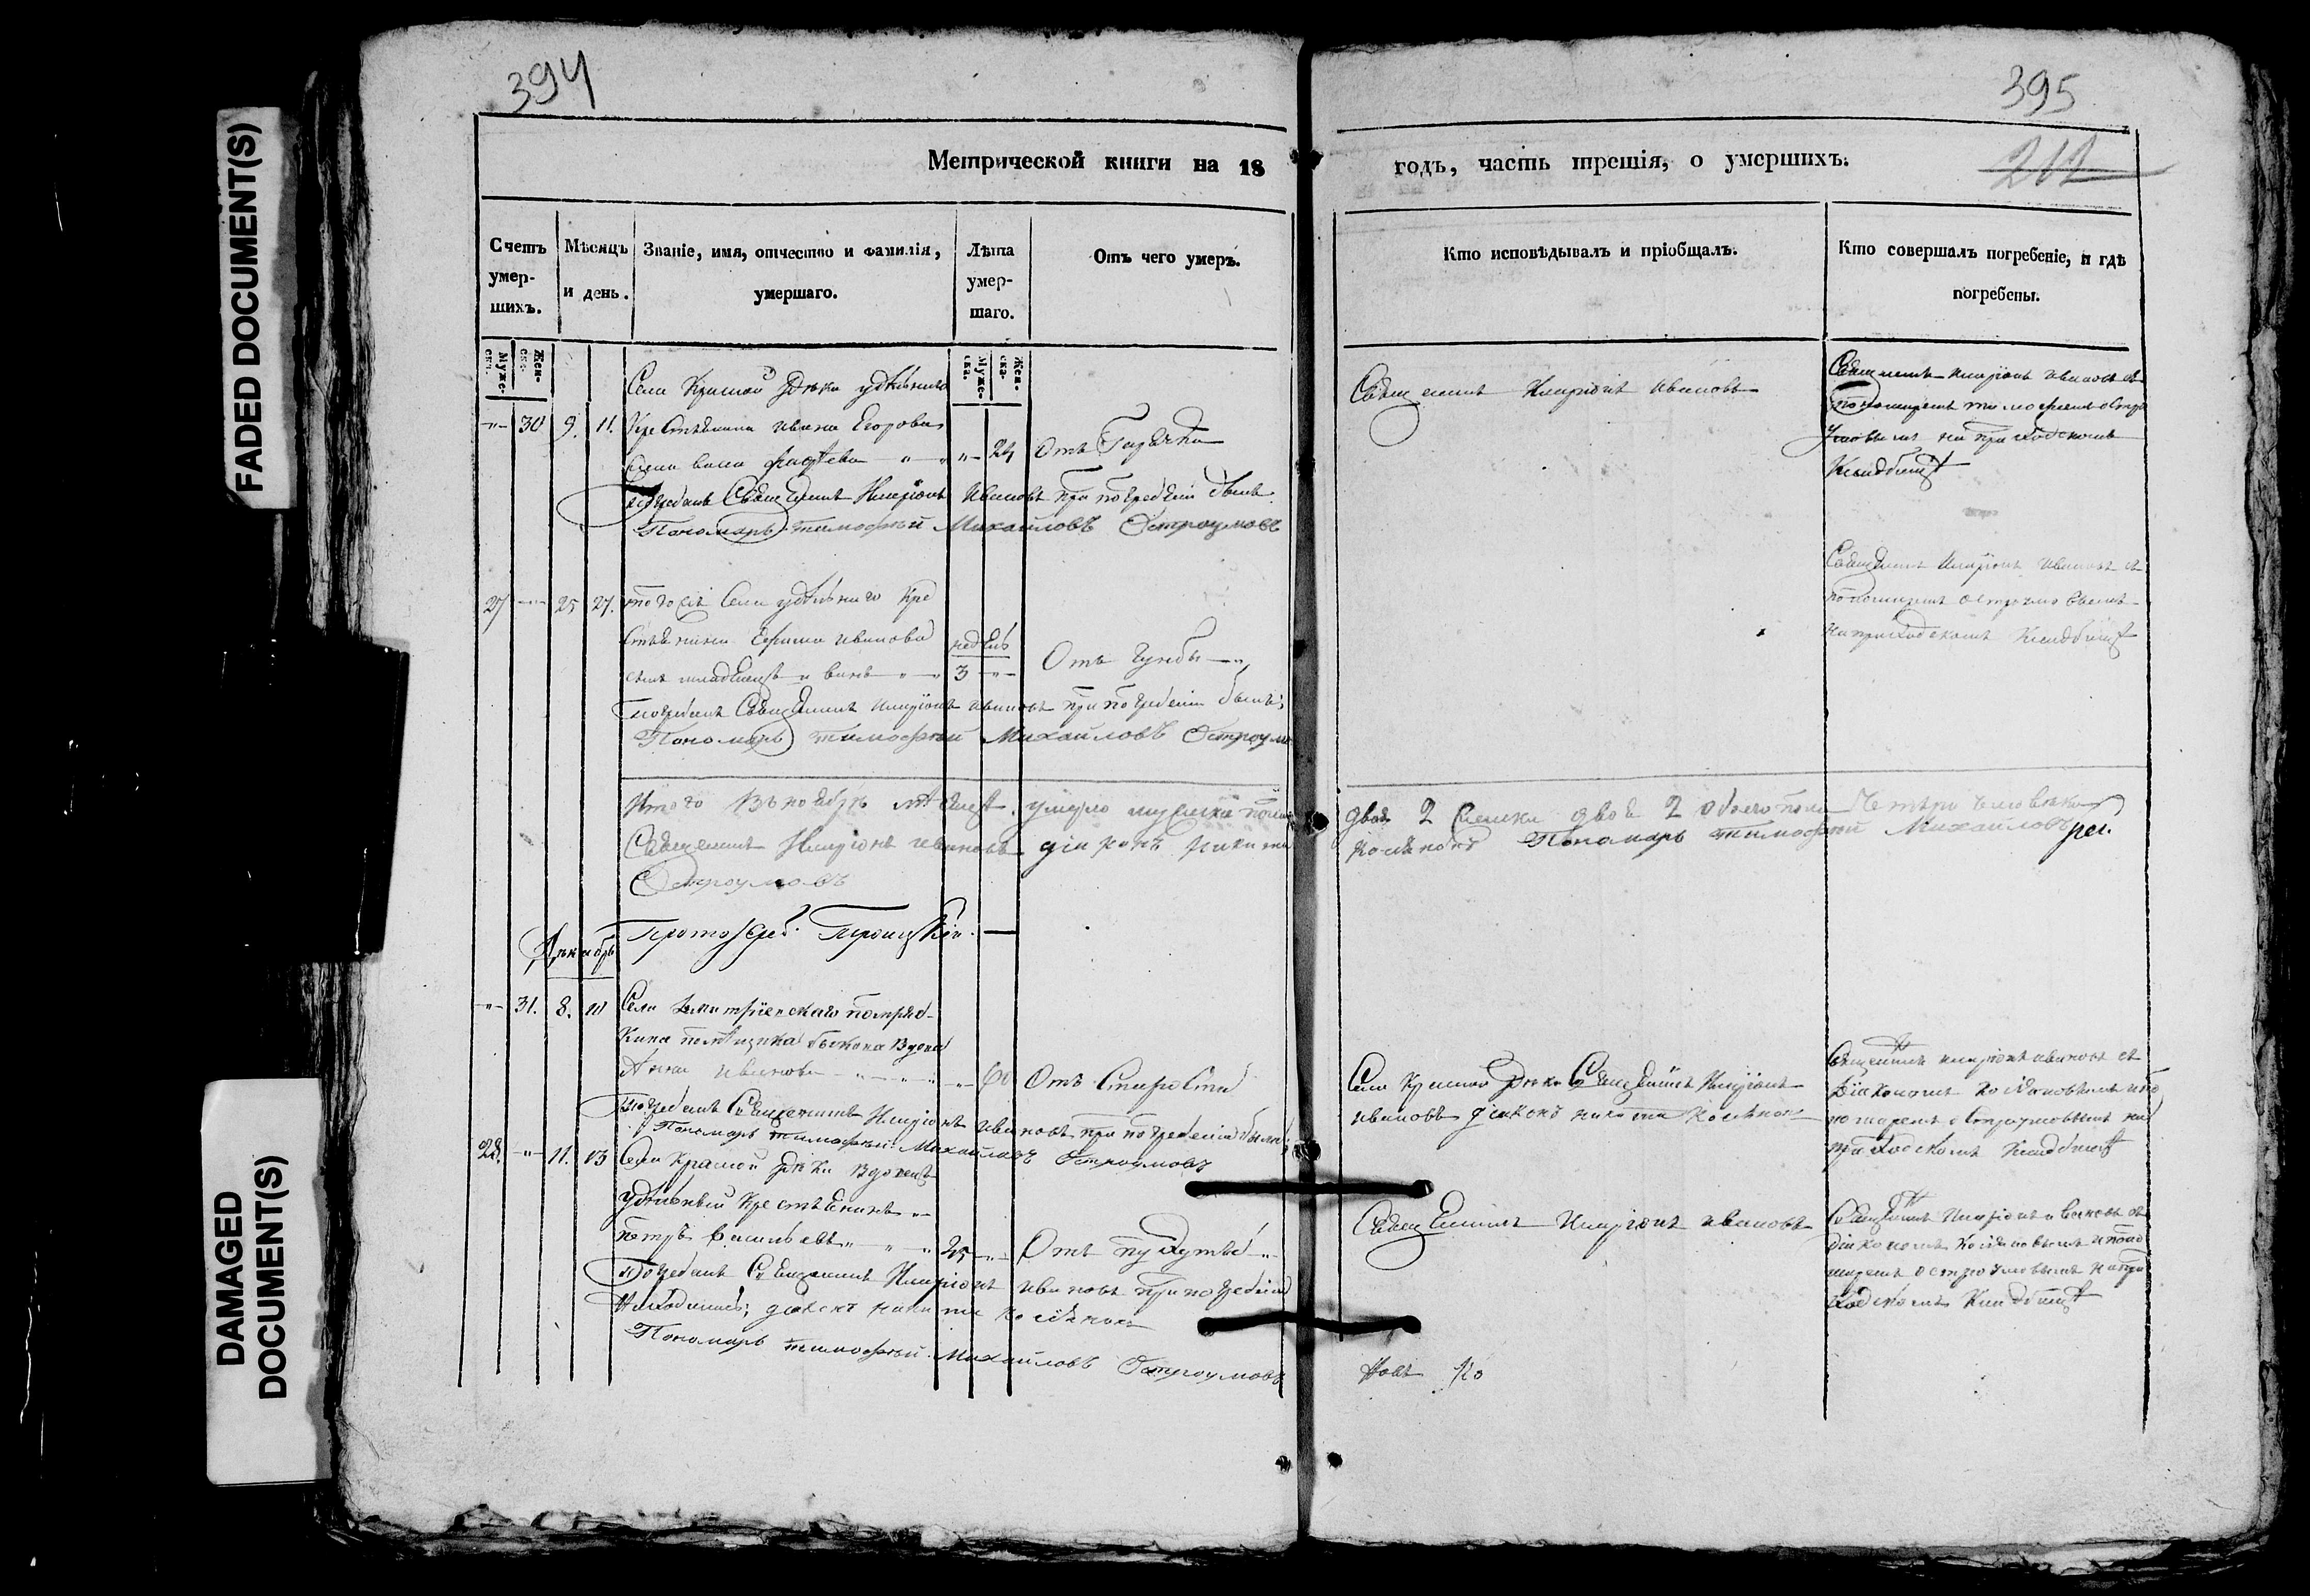 FADED DOCUMENT(S)
DAMAGED
DOCUMENT(S)
394
Метрической книги на 18
Счетъ
умер-
шихъ.
Мѣсяцъ
и день.
Званіе, имя, отчество и фамилія,
умершаго.
Лѣта
умер-
шаго.
Отъ чего умеръ.
Муже-
ск.
Жен-
ск.
Муже-
ска.
Жен-
ска.
Села Красной Рѣки удѣльнаго
30 9. 11. Крестьянина Ивана Егорова
жена 24 Отъ Горячки
погребалъ Священникъ Иларіонъ Ивановъ при погребеніи былъ
Пономарь Тимофей Михайловъ Остроумовъ
27 25 27. того же Села удѣльнаго Кре
стьянина Ефима Иванова недель
сынъ младенецъ Иванъ 3 Отъ
погребалъ Священникъ Иларіонъ Ивановъ при погребеніи былъ
Пономарь Тимофей Михайловъ Остроумо
Итого въ ноябрѣ мѣсяцѣ умерло мужеска пола
Священникъ Иларіонъ Ивановъ діаконъ Никита
Остроумовъ
Протоіерей Троицкій
Декабрь
31. 8. 10 Села Димитріевскаго помряс-
кина помѣщика вдова
Анна Иванова 60 Отъ Старости
погребалъ Священникъ Иларіонъ Ивановъ при погребеніи были
Пономарь Тимофей Михайловъ Остроумовъ
28. 11. 13 Села Красной Рѣки вдовецъ
удѣльный Крестьянинъ
Петръ Васильевъ 25 Отъ
погребалъ Священникъ Иларіонъ Ивановъ при погребеніи
находились діаконъ Никита
Пономарь Тимофей Михайловъ Остроумовъ
395
212
годъ, часть третія, о умершихъ.
Кто исповѣдывалъ и пріобщалъ.
Кто совершалъ погребеніе, и гдѣ
погребены.
Священникъ Иларіонъ Ивановъ
Священникъ Иларіонъ Ивановъ съ
пономаремъ Тимофеемъ Остро
умовымъ на приходскомъ
Кладбищѣ
Священникъ Иларіонъ Ивановъ съ
пономаремъ Остроумовымъ
на приходскомъ Кладбищѣ
двое 2 женска двое 2 обоего пола Четыре человѣка
Пономарь Тимофей Михайловъ
Села Красной Рѣки Священникъ Иларіонъ
Ивановъ діаконъ Никита
Священникъ Иларіонъ Ивановъ съ
Діакономъ и по
номаремъ Остроумовымъ на
приходскомъ Кладбищѣ
Священникъ Иларіонъ Ивановъ
Священникъ Иларіонъ Ивановъ съ
діакономъ и поно
маремъ Остроумовымъ на при
ходскомъ Кладбищѣ